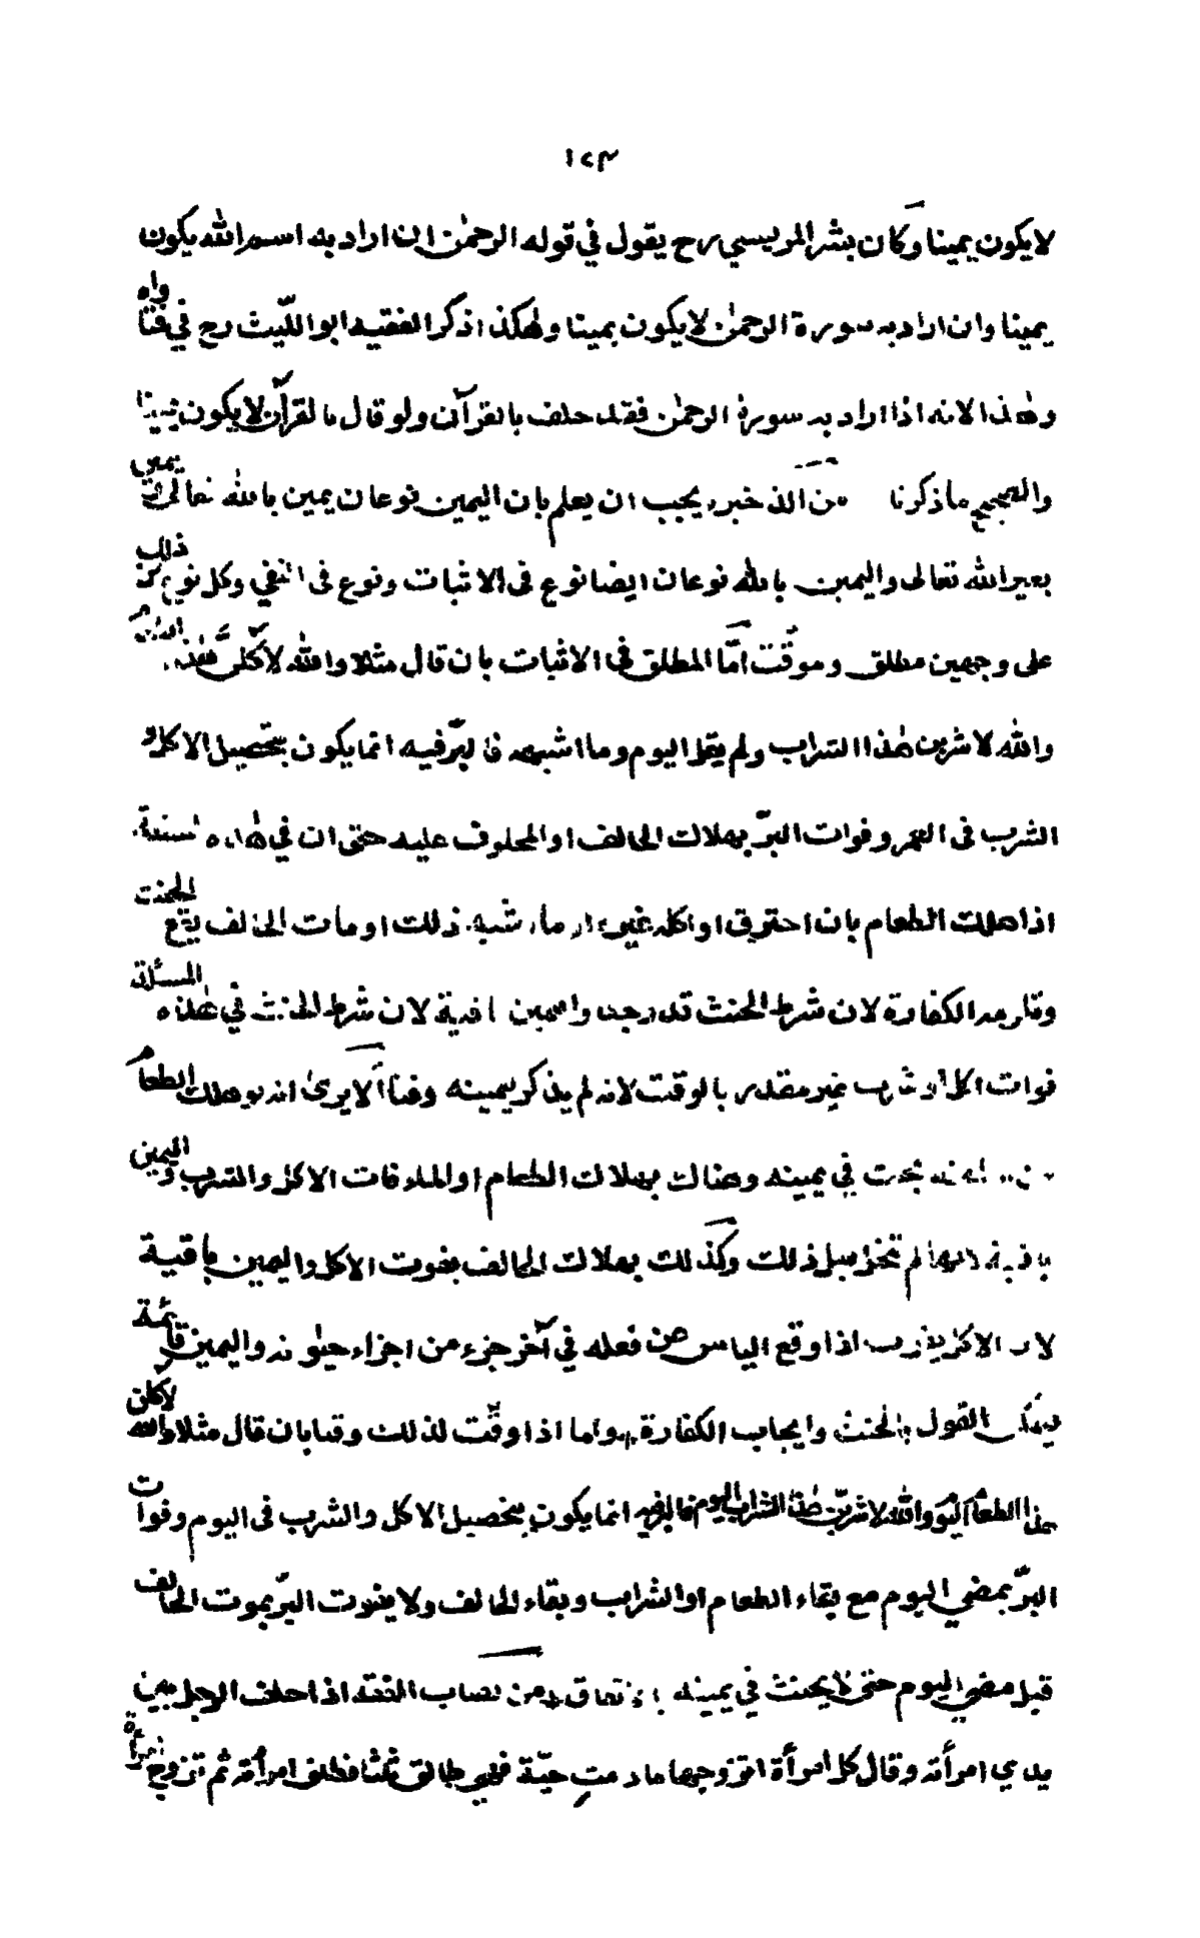 ١٢٣
لا يكون يمينا وكان بشر المريسي رح يقول في قوله الرحمٰن ان اراد به اسم الله يكون
يمينا وان اراد به سورة الرحمٰن لا يكون يمينا وهٰكذا ذكر الفقيه ابو اللّيث رح في فتاواه
وهٰذا لانه اذا اراد به سورة الرحمٰن فقد حلف بالقرآن ولو قال بالقرآن لا يكون يمينا
والصحيح ما ذكرنا من الذخيرة يجب ان يعلم بان اليمين نوعان يمين بالله تعالى ويمين
بغير الله تعالى واليمين بالله نوعان ايضا نوع فى الاثبات ونوع فى النفي وكل نوع من ذلك
على وجهين مطلق وموقّت امّا المطلق في الاثبات بان قال مثلا والله لآكلنّ هٰذا الطعام
والله لاشربن هٰذا الشراب ولم يقل اليوم وما اشبهه فالبرّ فيه انما يكون بتحصيل الاكل و
الشرب فى العمر وفوات البرّ بهلاك الحالف او المحلوف عليه حتى ان في هٰذه المسئلة
اذا هلك الطعام بان احترق او اكله غيره او ما اشبه ذلك او مات الحالف يقع الحنث
الكفارة لان شرط الحنث قد وجد واليمين باقية لان شرط الحنث في هٰذه المسئلة
فوات الاكل او الشرب غير مقدر بالوقت لانه لم يذكر ليمينه وقتا الا يرىٰ انه لو هلك الطعام
يحنث في يمينه وهناك بهلاك الطعام او الماء فات الاكل والشرب واليمين
باقية لانها لم تنحل قبل ذلك وكذلك بهلاك الحالف يفوت الاكل واليمين باقية
اذا وقع الياس عن فعله في آخر جزء من اجزاء حيٰوته واليمين قائمة
فيمكن القول بالحنث وايجاب الكفارة واما اذا وقّت لذلك وقتا بان قال مثلا والله لآكلن
هذا الطعام اليوم والله لاشربنّ هٰذا الشراب اليوم فالبر فيه انما يكون بتحصيل الاكل والشرب فى اليوم وفوات
البرّ بمضي اليوم مع بقاء الطعام او الشراب وبقاء الحالف ولا يفوت البرّ بموت الحالف
قبل مضي اليوم حتى لا يحنث في يمينه بالاتفاق من نصاب الفقه اذا حلف الرجل بين
يدي امرأته وقال كل امرأة اتزوجها ما دمتِ حيّة فهي طالق ثلٰثا فطلق امرأته ثم تزوج امرأة